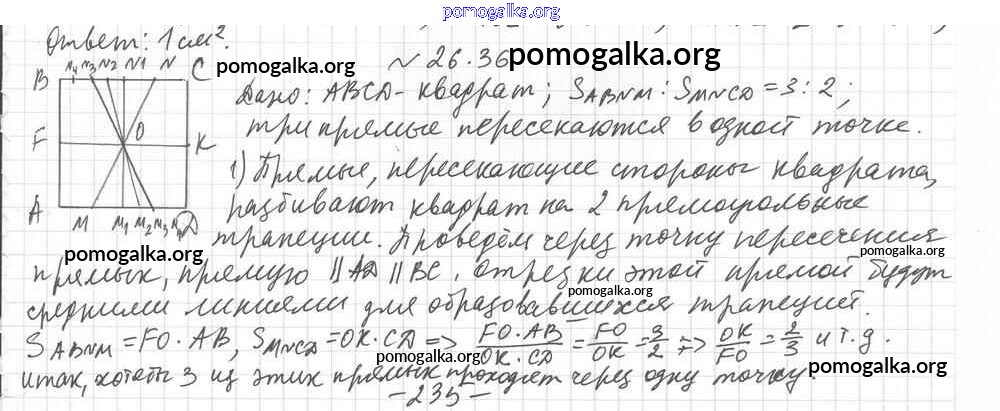 pomogalka.org
Ответ: 1 см².
№ 26.36
pomogalka.org
pomogalka.org
B N4 N3 N2 N1 N C
Дано: ABCD - квадрат; SABNM : SMNCD = 3 : 2;
три прямые пересекаются в одной точке.
F O K
1) Прямые, пересекающие стороны квадрата,
A M M1 M2 M3 M4 D
разбивают квадрат на 2 прямоугольные
трапеции. Проведём через точку пересечения
pomogalka.org
pomogalka.org
прямых, прямую || AD || BC. Отрезки этой прямой будут
pomogalka.org
средними линиями для образовавшихся трапеций.
SABNM = FO · AB, SMNCD = OK · CD => FO · AB / OK · CD = FO / OK = 3 / 2 => OK / FO = 2 / 3 и т.д.
pomogalka.org
pomogalka.org
итак, хотя бы 3 из этих прямых проходят через одну точку.
- 235 -